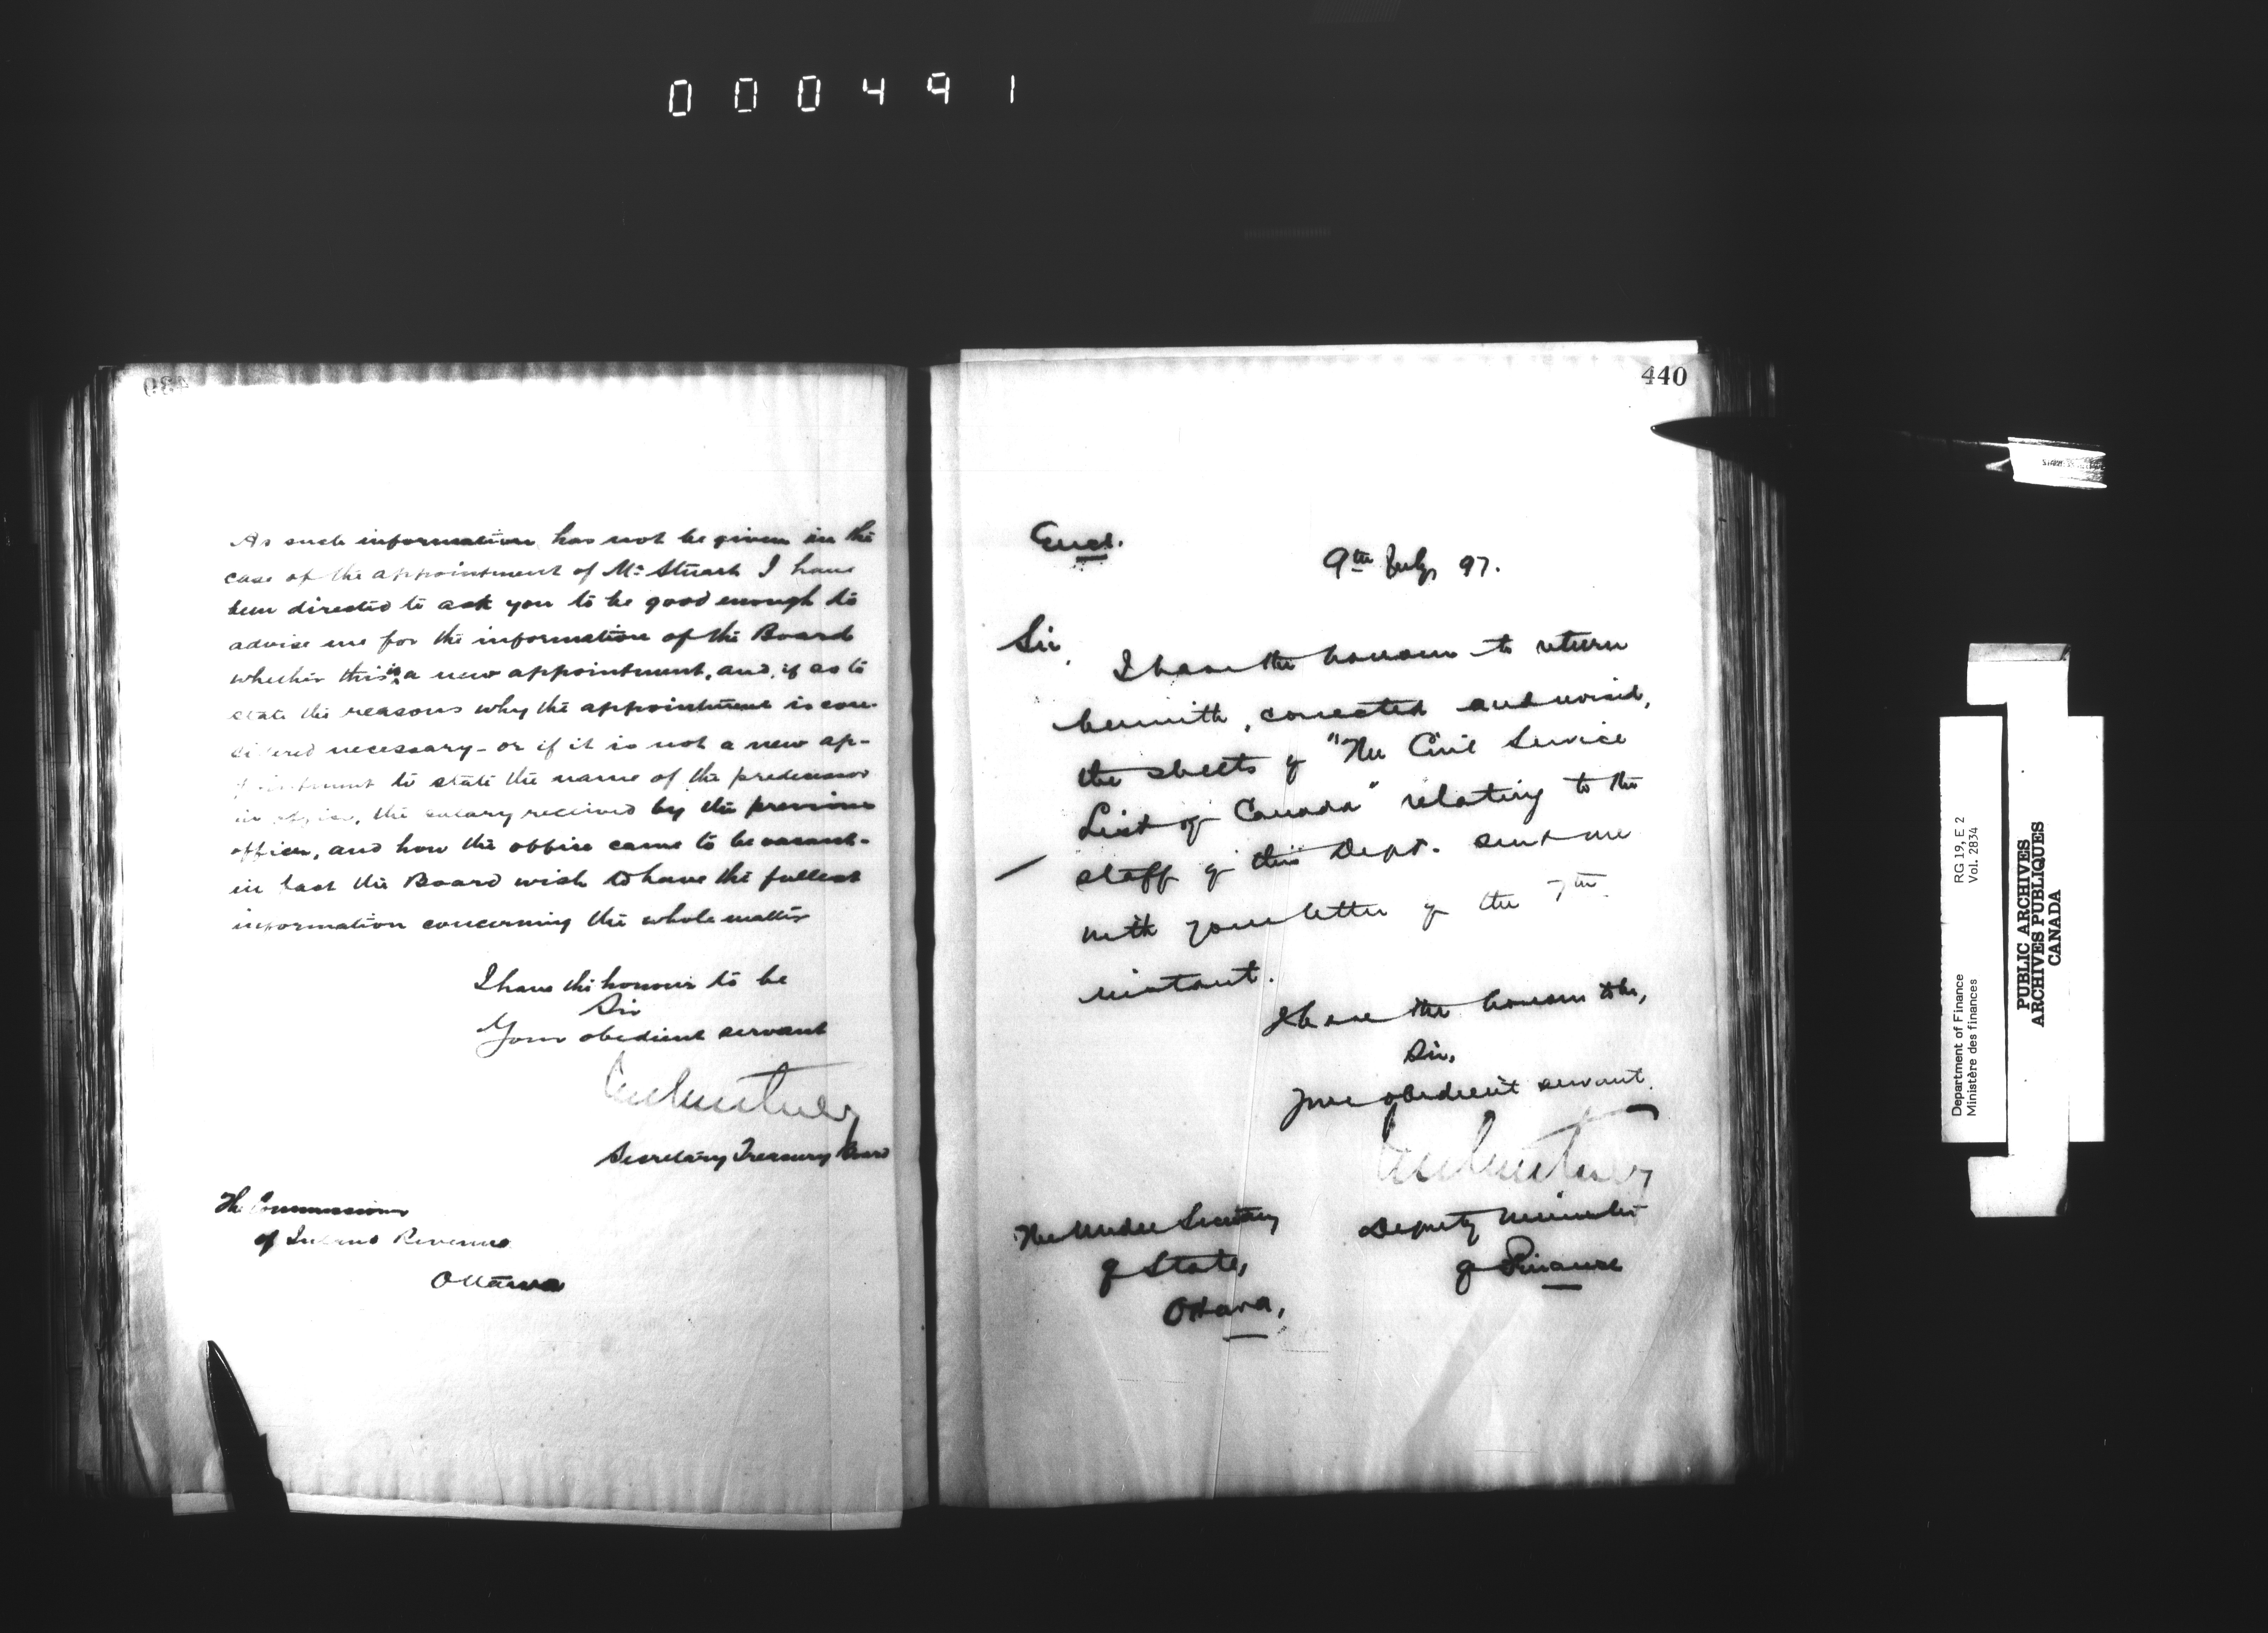 000491
439
As such information has not be given in the
case of the appointment of Mr. Stuart I have
been directed to ask you to be good enough to
advise me for the information of the Board
whether this is a new appointment, and, if as to
state the reasons why the appointment is con-
sidered necessary - or if it is not a new ap-
pointment to state the name of the predecessor
in office, the salary received by the previous
officer, and how the office came to be vacant -
in fact the Board wish to have the fullest
information concerning the whole matter
I have the honour to be
Sir
Your obedient servant
Secretary Treasury Board
The Commissioner
of Inland Revenue
Ottawa
440
Encl.
9th July, 97.
Sir,
I have the honour to return
herewith, corrected and revised,
the sheets of "The Civil Service
List of Canada" relating to the
staff of this Dept. sent me
with your letter of the 7th
instant.
I have the honour to be,
Sir,
Your obedient servant.
Deputy Minister
of Finance
The Under Secretary
of State,
Ottawa,
Department of Finance
Ministère des finances
RG 19, E 2
Vol. 2834
PUBLIC ARCHIVES
ARCHIVES PUBLIQUES
CANADA